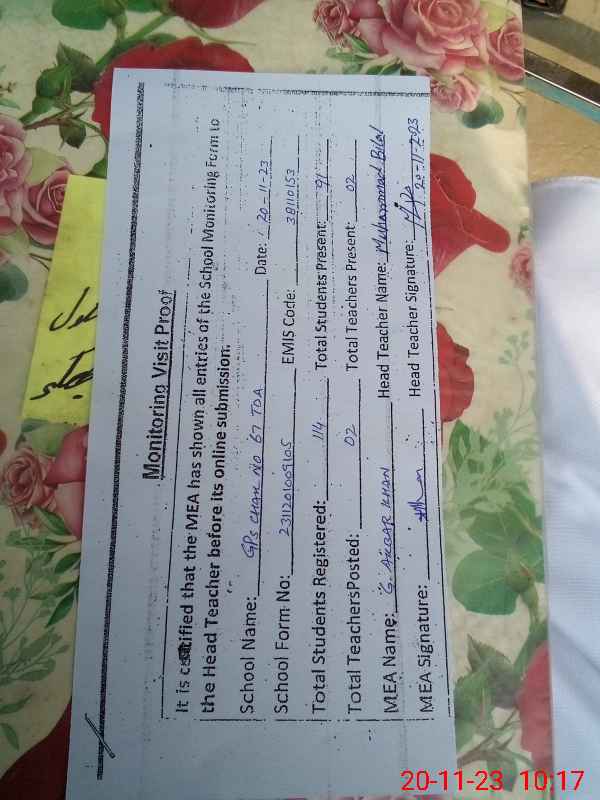 Monitoring Visit Proof
It is certified that the MEA has shown all entries of the School Monitoring Form to
the Head Teacher before its online submission.
School Name: GPS CHAK NO 67 TDA Date: 20-11-23
School Form No: 2311201009105 EMIS Code: 38110153
Total Students Registered: 114 Total Students Present: 91
Total TeachersPosted: 02 Total Teachers Present: 02
MEA Name: G. AKBAR KHAN Head Teacher Name: Muhammad Bilal
MEA Signature: Head Teacher Signature: 20-11-2023
20-11-23 10:17